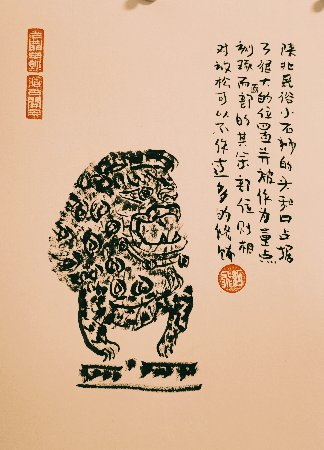 陕北民俗小石狮的头和口占据
了很大的位置并被作为重点
刻琢而部的其余部位则相
对放松可以不作过多的修饰